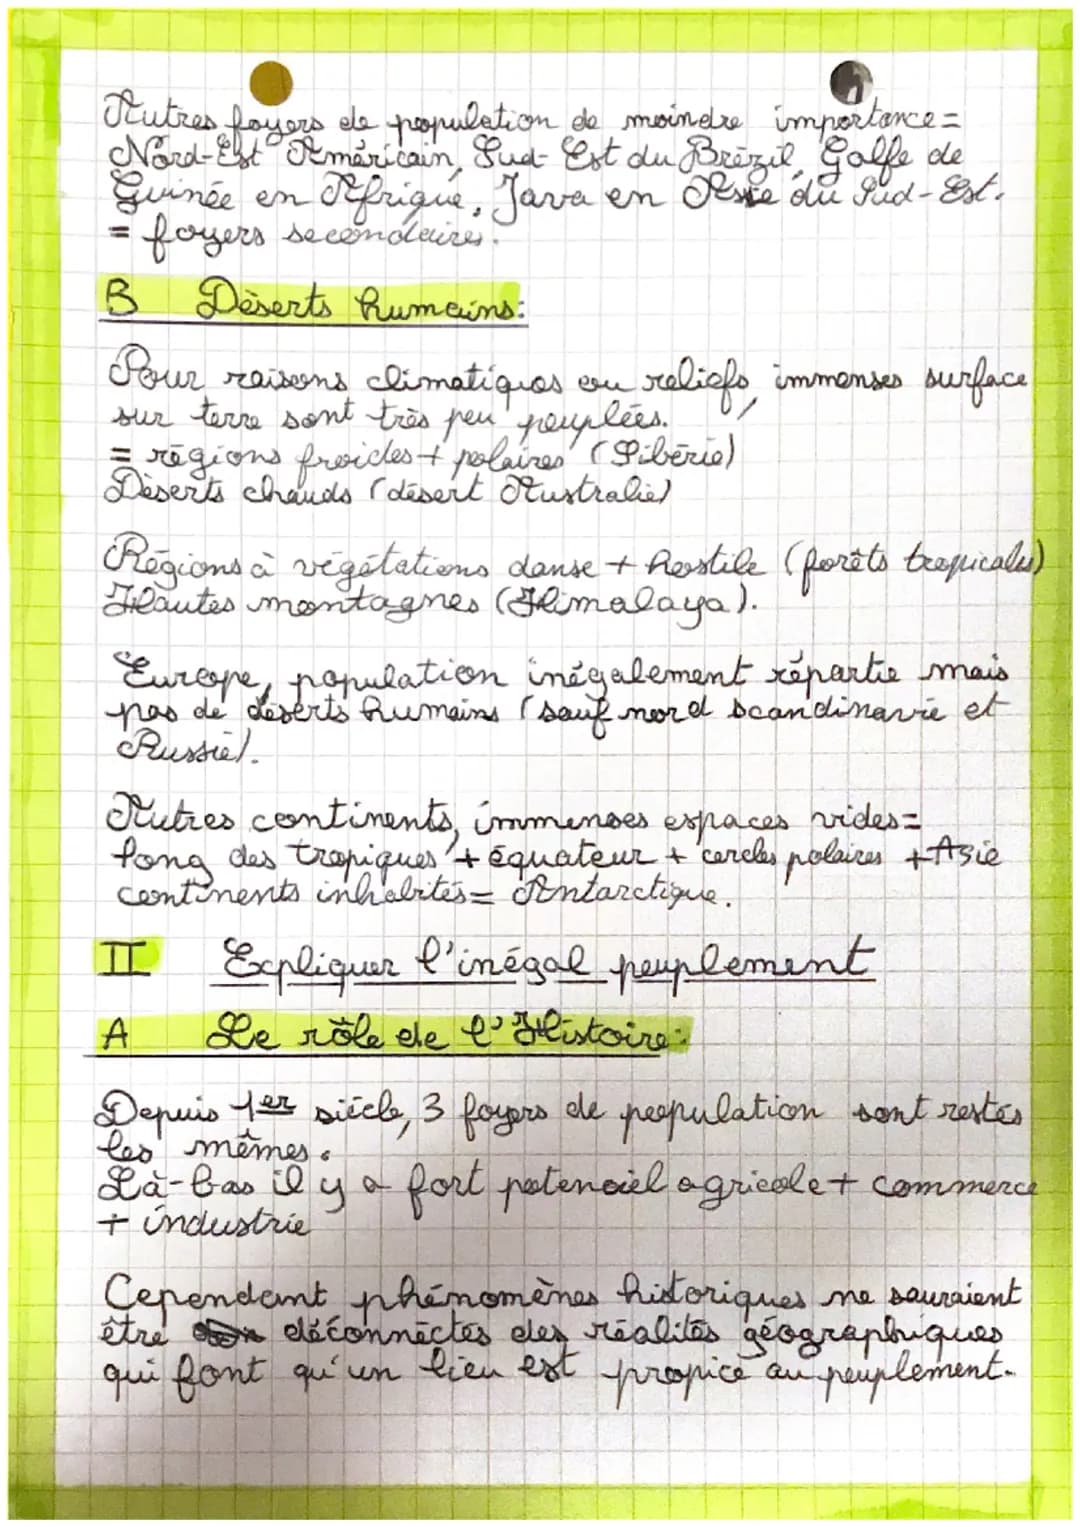 Autres foyers de population de moindre importance =
Nord-Est Américain, Sud-Est du Brézil, Golfe de
Guinée en Afrique, Java en Asie du Sud-Est.
= foyers secondaires.
B Déserts humains:
Pour raisons climatiques ou reliefs, immenses surface
sur terre sont très peu peuplées.
= régions froides + polaires (Sibérie)
Déserts chauds (désert Australie)
Régions à végétations danse + hostile (forêts tropicales)
Hautes montagnes (Himalaya).
Europe, population inégalement répartie mais
pas de déserts humains (sauf nord scandinavie et
Russie).
Autres continents, immenses espaces vides =
long des tropiques + équateur + cercles polaires + Asie
continents inhabités = Antarctique.
II Expliquer l'inégal peuplement
A Le rôle de l'Histoire:
Depuis 1er siècle, 3 foyers de population sont restés
les mêmes.
Là-bas il y a fort potenciel agricole + commerce
+ industrie
Cependant phénomènes historiques ne sauraient
être déconnectés des réalités géographiques
qui font qu'un lieu est propice au peuplement.